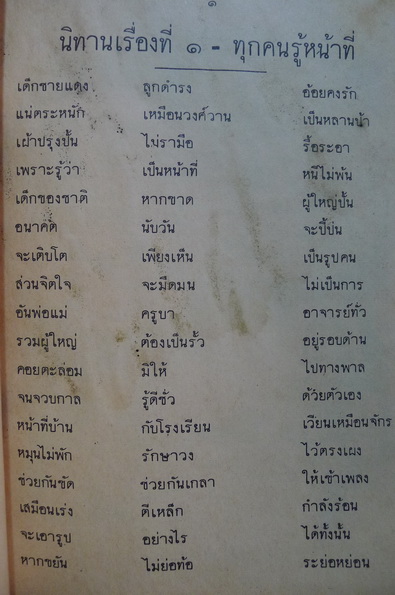 ๑
นิทานเรื่องที่ ๑ - ทุกคนรู้หน้าที่
เด็กชายแดง ลูกดำรง อ้อยคงรัก
แน่ตระหนัก เหมือนวงศ์วาน เป็นหลานป้า
เฝ้าปรุงปั้น ไม่รามือ รื้อระอา
เพราะรู้ว่า เป็นหน้าที่ หนีไม่พ้น
เด็กของชาติ หากขาด ผู้ใหญ่ปั้น
อนาคต นับวัน จะปี้ป่น
จะเติบโต เพียงเห็น เป็นรูปคน
ส่วนจิตใจ จะมืดมน ไม่เป็นการ
อันพ่อแม่ ครูบา อาจารย์ทั่ว
รวมผู้ใหญ่ ต้องเป็นรั้ว อยู่รอบด้าน
คอยตะล่อม มิให้ ไปทางพาล
จนจวบกาล รู้ดีชั่ว ด้วยตัวเอง
หน้าที่บ้าน กับโรงเรียน เวียนเหมือนจักร
หมุนไม่พัก รักษาวง ไว้ตรงเผง
ช่วยกันขัด ช่วยกันเกลา ให้เข้าเพลง
เสมือนเร่ง ตีเหล็ก กำลังร้อน
จะเอารูป อย่างไร ได้ทั้งนั้น
หากขยัน ไม่ย่อท้อ ระย่อหย่อน